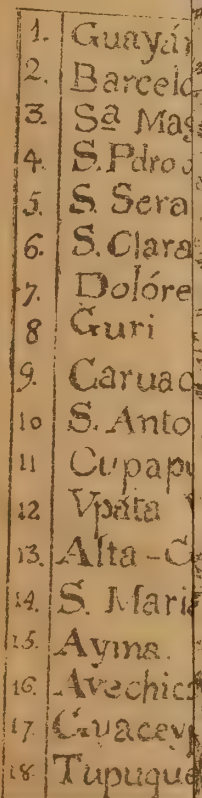 1. Guayán
2. Barcelo
3. Sª Mag
4. S. Pdro
5. S. Sera
6. S. Clara
7. Dolóre
8 Guri
9. Caruac
10 S. Anto
11 Cupapu
12 Vpáta
13. Alta-C
14. S. Maria
15. Ayma.
16. Avechica
17. Guaceyp
18. Tupuque